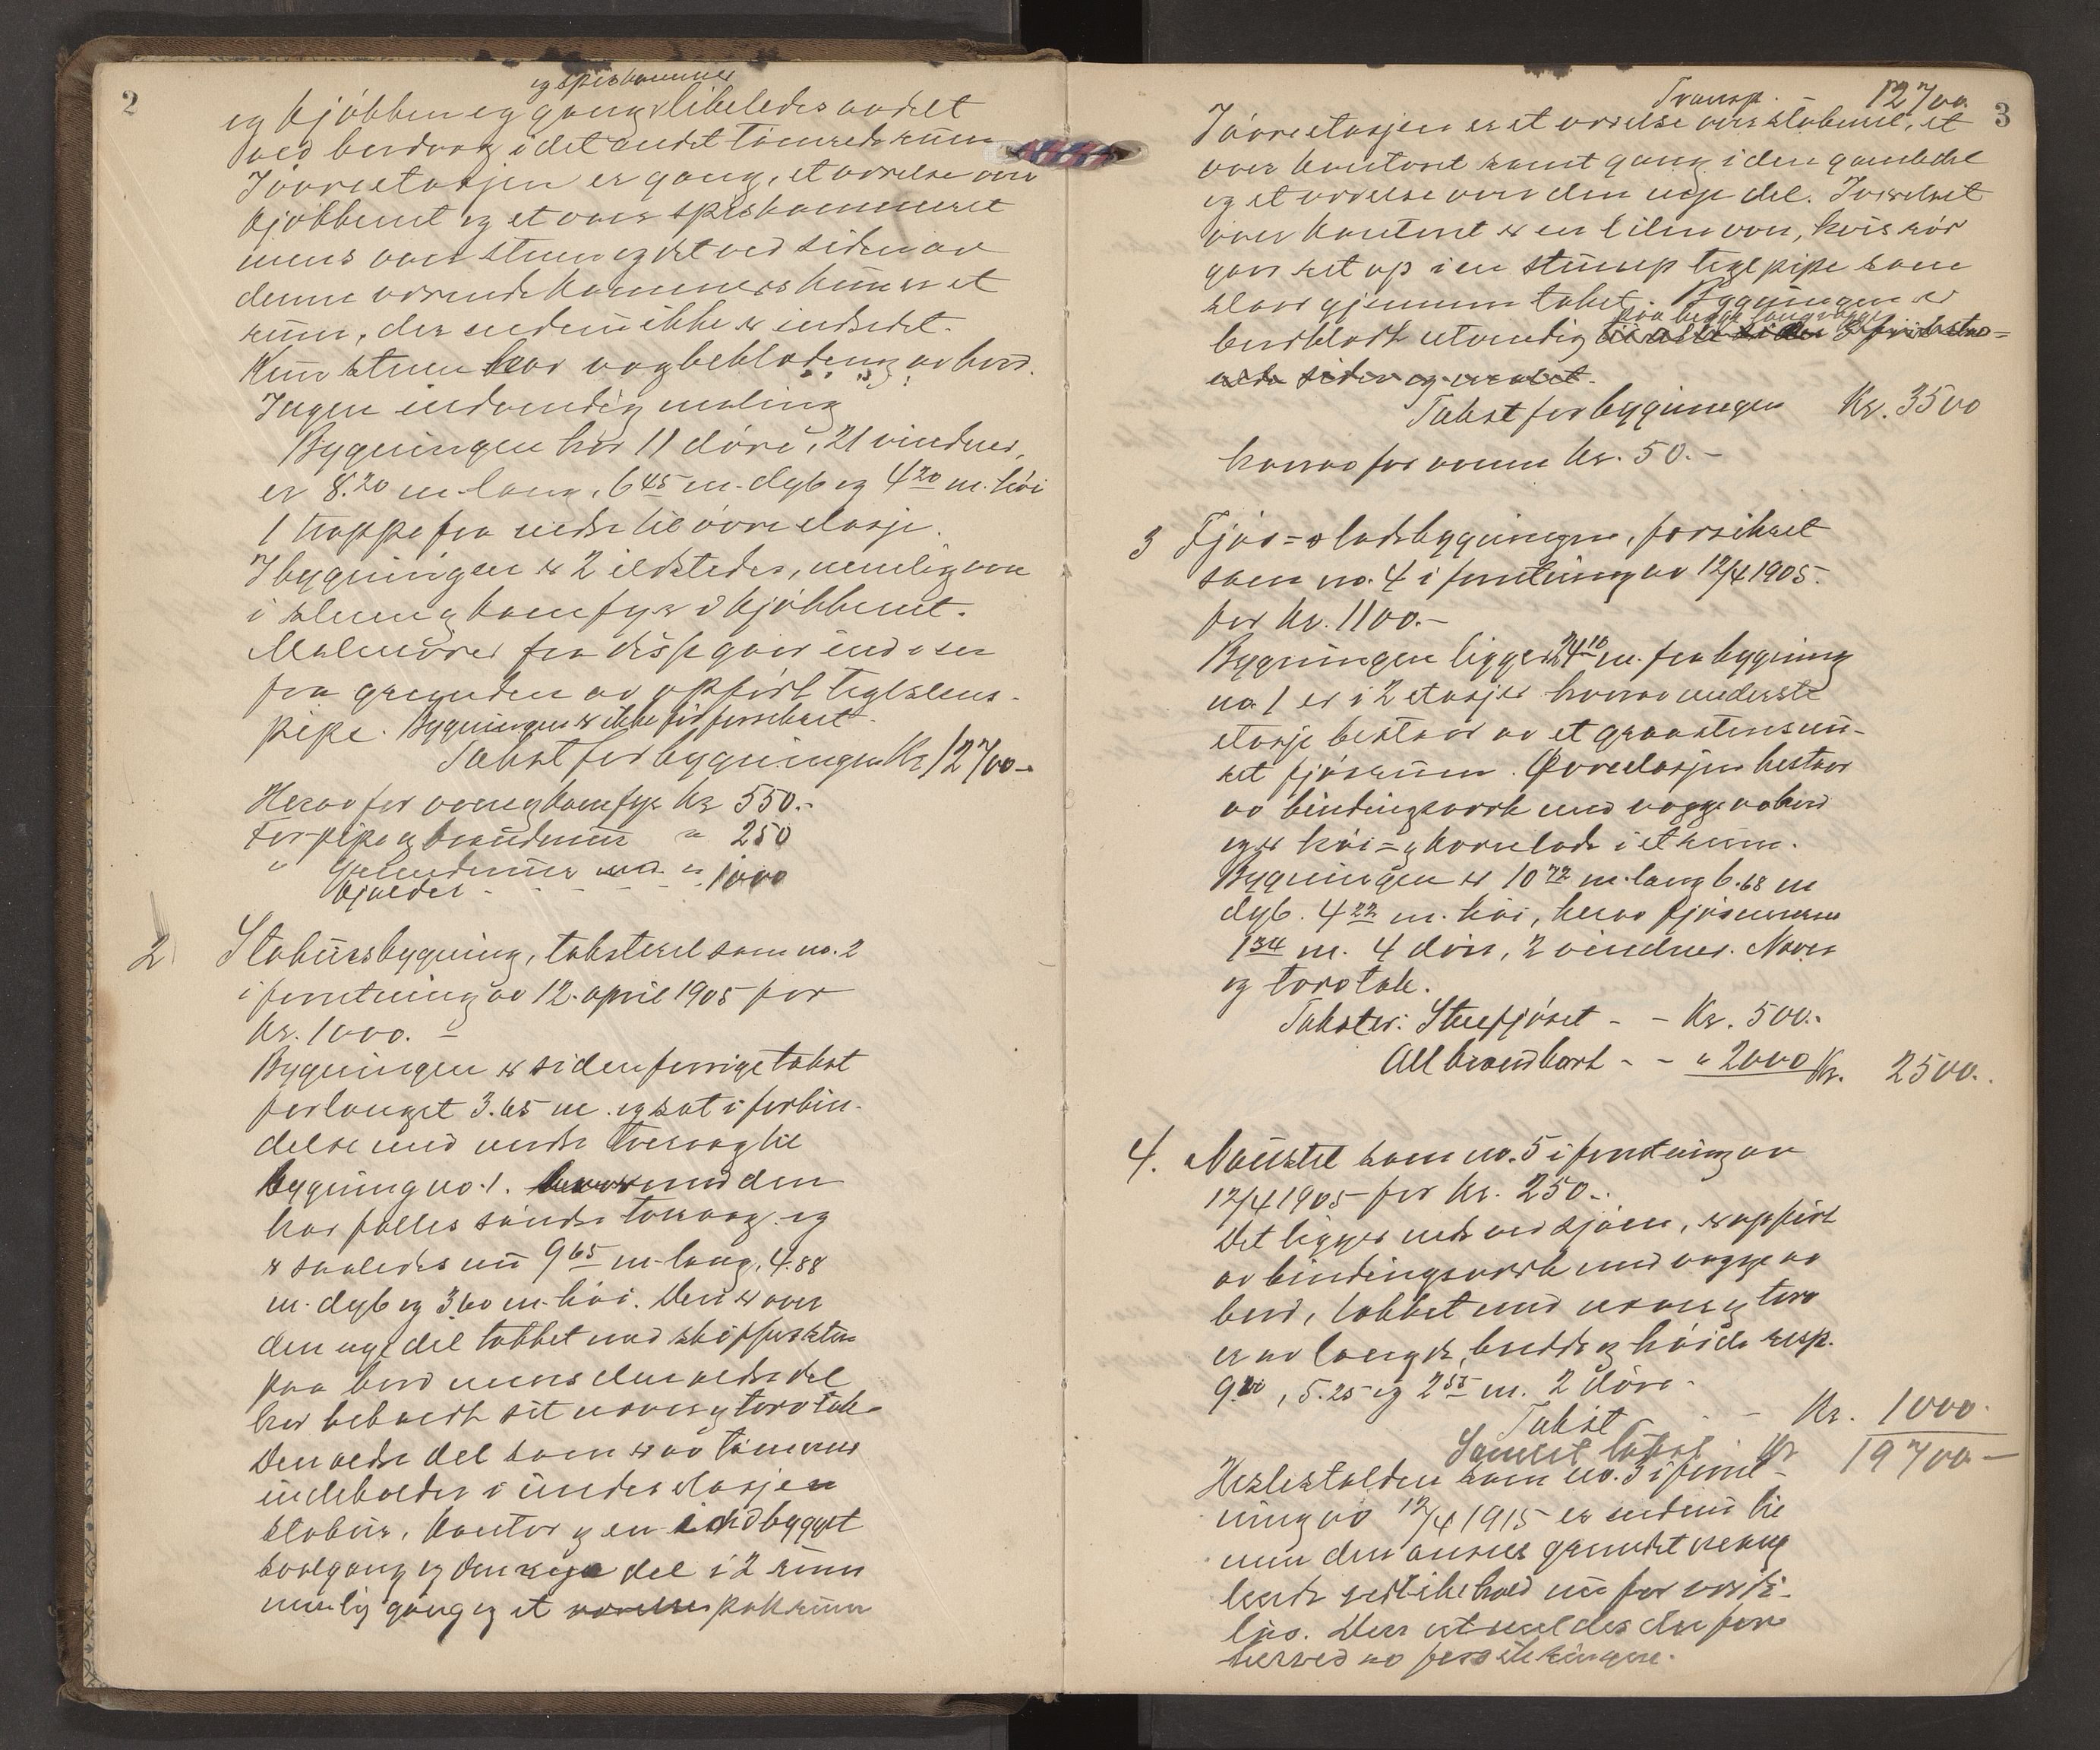 2
og spiskammer
og kjökken og gang likeledes avdelt
ved bordvæg i det andet tömrede rum
I övre etasjen er gang, et værelse over
kjökkenet og et over spiskammeret
mens over stuen og det ved siden av
denne værende kammers kun er et
rum, der endnu ikke er indredet.
Kun stuen har vægbeklædning av bord.
Ingen indvendig maling
Bygningen har 11 döre, 21 vinduer,
er 8.20 m. lang, 6 45 m. dyb og 4 20 m. höi
1 trappe fra nedre til övre etasje.
I bygningen er 2 ildsteder, nemlig ovn
i stuen og komfyr i kjökkenet.
Malmrörer fra disse gaar ind i en
fra grunden av opfört teglstens-
pipe. Bygningen er ikke för forsikret.
Takst for bygningen Kr. 12700.-
Herav for ovn og komfyr Kr 550.-
For pipe og brandmur " 250
" Grundmur med "
kjælder - - - - 1000
2 Stabursbygning, taksteret som no. 2
i forretning av 12. april 1905 for
Kr. 1000. -
Bygningen er siden forrige takst
forlænget 3.65 m. og sat i forbin-
delse med nordre tvervæg til
bygning no. 1. med den
har fælles söndre tverrvæg og
er saaledes nu 9 65 m. lang, 4.88
m. dyb og 3 60 m. höi. Den er over
den nye del tækket med skiffersten
paa bord mens den ældre del
har beholdt sit næver og torvtak.
Den ældre del som er av tömmer
indeholder i underetasjen
stabur, kontor og en indbygget
svalgang og den nye del i 2 rum
nemlig gang og et værelse pakrum
3
Transp. - 12700.
I övre etasjen er et værelse over staburet, et
over kontoret samt gang i den gamle del
og et værelse over den nye del. I værelset
over kontoret er en liten ovn, hvis rör
gaar ret op i en stump teglpipe som
staar gjennem taket. Bygningen er
paa begge langvægge
bordklædt utvendig til alle sider
siden og malet.
Takst for bygningen Kr. 3500
hvorav for ovnen Kr. 50.-
3 Fjös- ladebygningen, forsikret
som no. 4 i forretning av 12/4 1905.
for Kr. 1100.-
Bygningen ligger 24 10 m. fra bygning
no. 1 er i 2 etasjer hvorav underste
etasje bestaar av et graastensmu-
ret fjösrum. Övre etasjen bestaar
av bindingsverk med vægge av bord
og er höi- og kornlade i et rum.
Bygningen er 10 72 m. lang 6.68 m
dyb. 4 22 m. höi, herav fjösmuren
1 34 m. 4 döre, 2 vinduer. Næver
og torvtak.
Takster: Stenfjöset - - Kr. 500.-
Alt brændbart - - " 2000 Kr. 2500.
4. Naustet som no. 5 i forretning av
12/4 1905 for Kr. 250.-
Det ligger nede ved sjöen, er opfört
av bindingsverk med vægge av
bord, tækket med næver og torv
er av længde, bredde og höide resp.
9 20, 5.25 og 2 55 m. 2 döre.
Takst - - - Kr. 1000.
Samlet takst Kr 19700.-
Hestestalden som no. 3 i forret-
ning av 12/4 1915 er endnu til
men den ansees grundet mang-
lende vedlikehold nu for værdi-
lös. Den utmeldes derfor
herved av forsikringen.